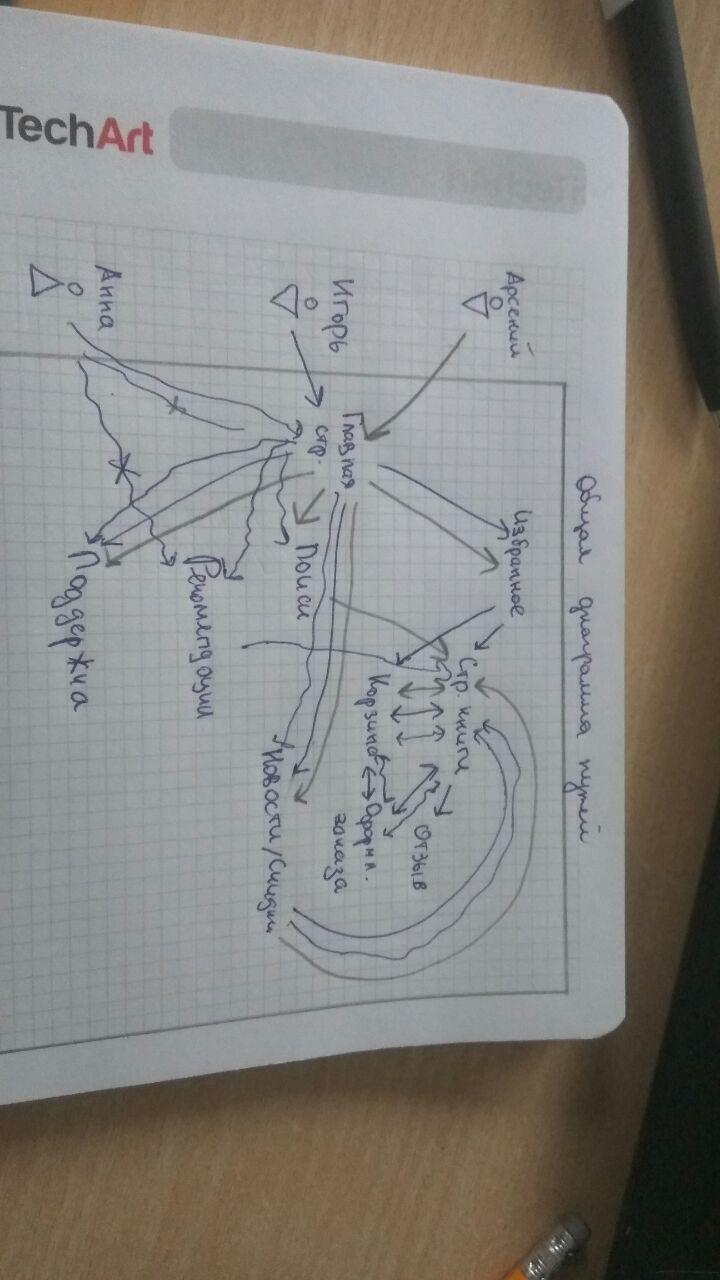 TechArt
Общая диаграмма путей
Арсений
Игорь
Анна
Главная
стр.
Избранное
Стр. книги
Корзина
Отзыв
Оформл.
заказа
Поиск
Новости/Скидки
Рекомендации
Поддержка